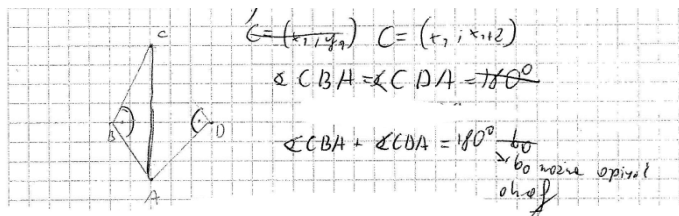 C = (x₁, y₁) C = (x₁ ; x₁+2)
∢ CBA = ∢ CDA = 180°
∢CBA + ∢CDA = 180° bo
bo można opisać
okrąg
C
B
D
A